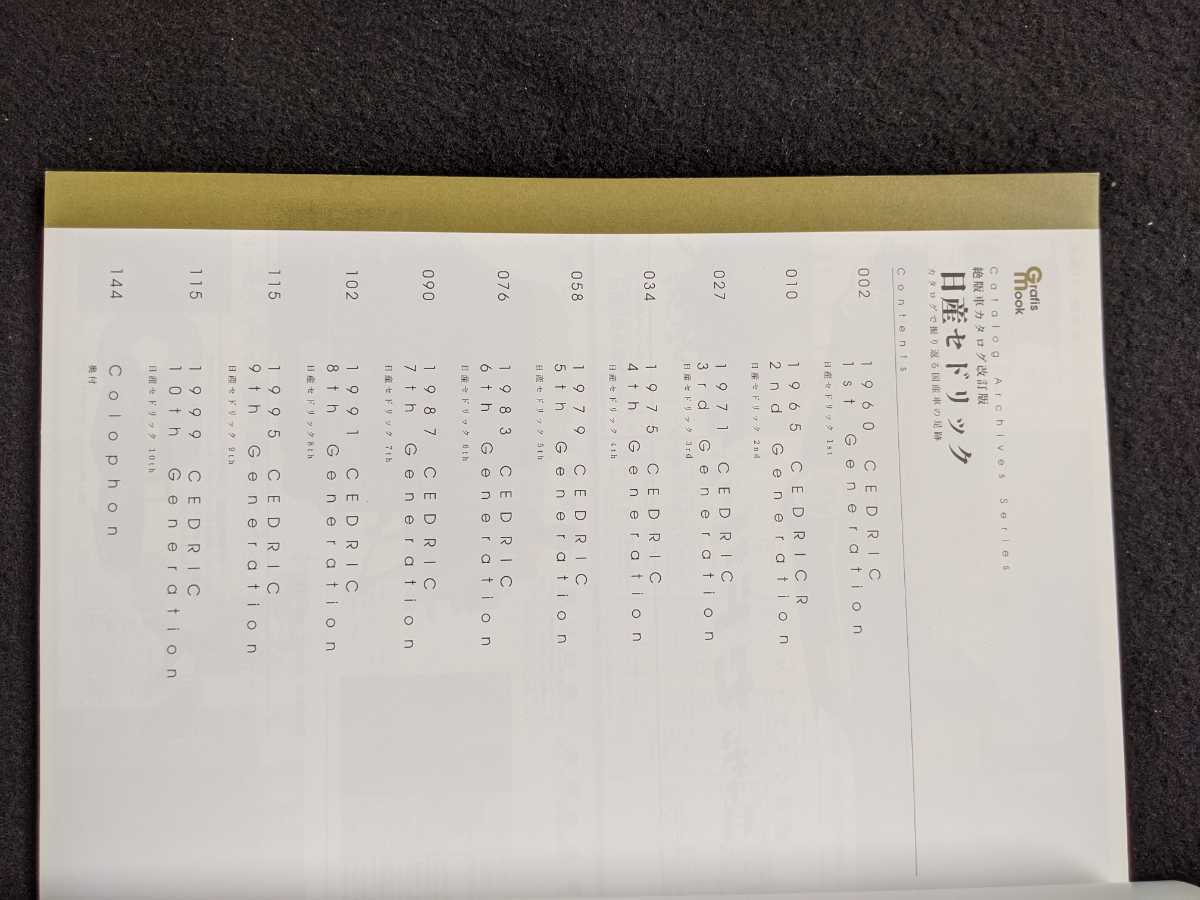 Grafis
mook
Catalog Archives Series
絶版車カタログ改訂版
日産セドリック
カタログで振り返る国産車の足跡
Contents
002 1960 CEDRIC
1st Generation
日産セドリック 1st
010 1965 CEDRICR
2nd Generation
日産セドリック 2nd
027 1971 CEDRIC
3rd Generation
日産セドリック 3rd
034 1975 CEDRIC
4th Generation
日産セドリック 4th
058 1979 CEDRIC
5th Generation
日産セドリック 5th
076 1983 CEDRIC
6th Generation
日産セドリック 6th
090 1987 CEDRIC
7th Generation
日産セドリック 7th
102 1991 CEDRIC
8th Generation
日産セドリック8th
115 1995 CEDRIC
9th Generation
日産セドリック 9th
115 1999 CEDRIC
10th Generation
日産セドリック 10th
144 Colophon
奥付